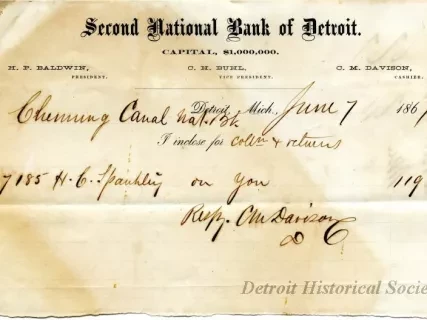 Second National Bank of Detroit.
CAPITAL, $1,000,000.
H. P. BALDWIN, C. H. BUHL, C. M. DAVISON,
PRESIDENT. VICE PRESIDENT. CASHIER.
Detroit, Mich., June 7 186
Chemung Canal Nat. Bk
I inclose for colln & returns
7185 H. C. on You 119
Respy. CM Davison
C
Detroit Historical Socie